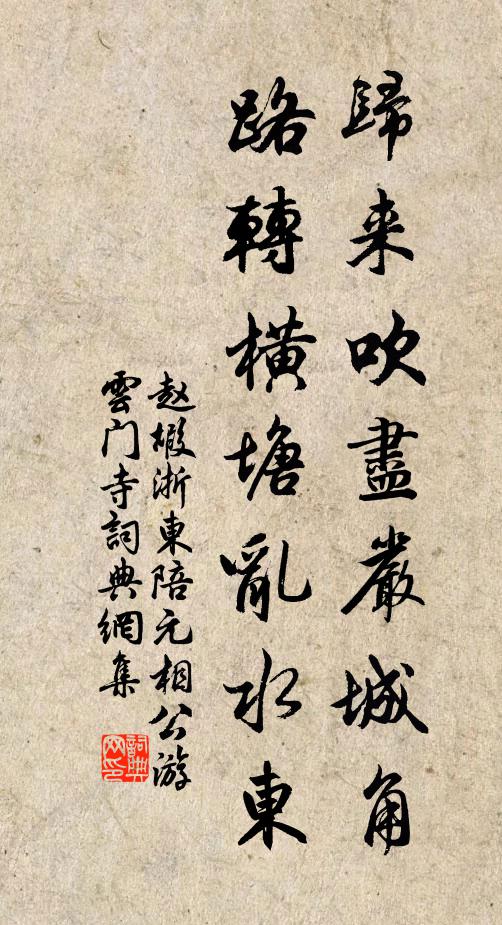 歸来吹盡嚴城角
路轉橫塘亂水東
赵嘏浙東陪元相公游
雲门寺詞典網集
詞典
网印